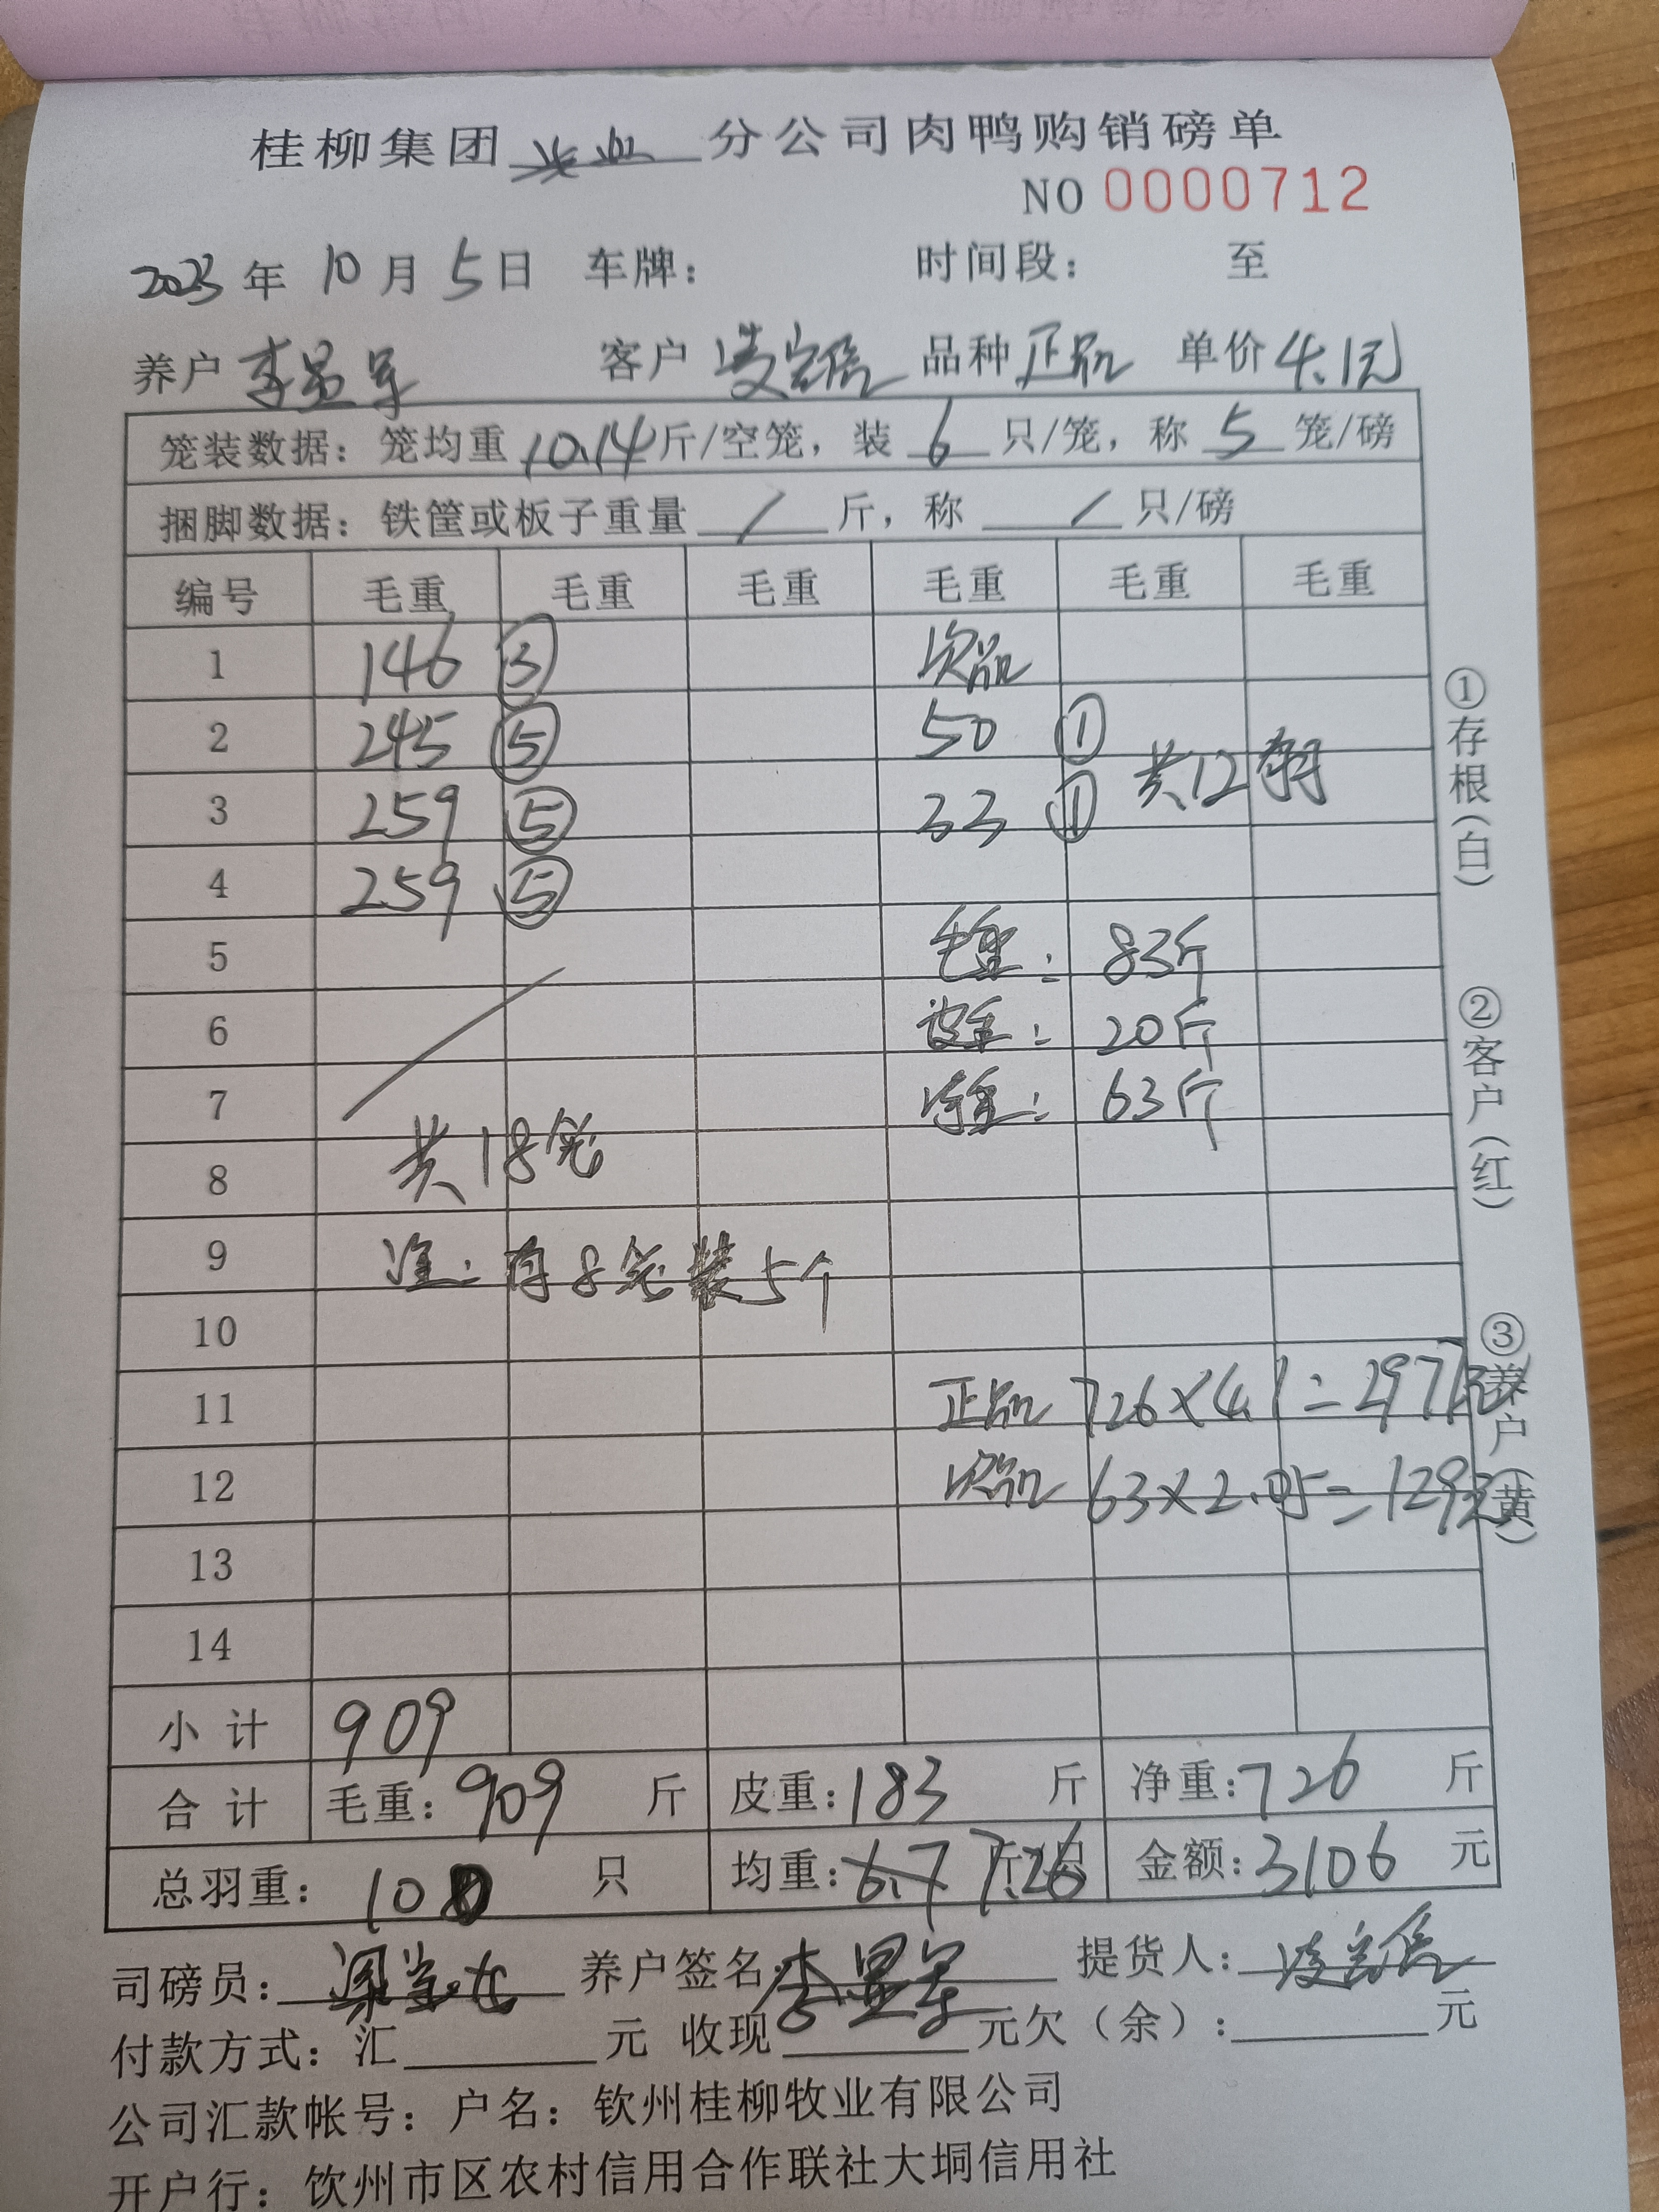 桂柳集团 分公司肉鸭购销磅单
NO 0000712
2023年 10月 5日 车牌： 时间段： 至
养户 李显军 客户 凌宏信 品种 正品 单价 4.1元
笼装数据：笼均重 10.14 斤/空笼，装 6 只/笼，称 5 笼/磅
捆脚数据：铁筐或板子重量 / 斤，称 / 只/磅
编号 毛重 毛重 毛重 毛重 毛重 毛重
1 146 ③ 次品
2 245 ⑤ 50 ①
共12羽
3 259 ⑤ 33 ①
4 259 ⑤
5 毛重： 83斤
6 皮重： 20斤
7 净重： 63斤
8 共18笼
9 注：有8笼装5个
10
11 正品 726×4.1=2977元
12 次品 63×2.05=129元
13
14
小计 909
合计 毛重：909 斤 皮重：183 斤 净重：726 斤
总羽重： 100 只 均重：6.7 7.26 斤/只 金额：3106 元
司磅员： 养户签名：李显军 提货人：凌宏信
付款方式：汇 元 收现 元欠（余）： 元
公司汇款帐号：户名：钦州桂柳牧业有限公司
开户行：钦州市区农村信用合作联社大垌信用社
①存根（白）
②客户（红）
③养户（黄）